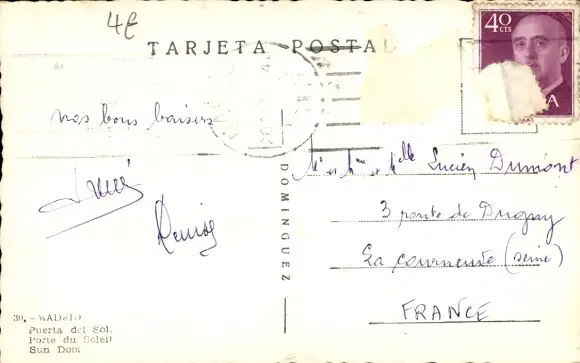 4€
TARJETA POSTAL
40
CTS
A
nos bons baisers
Denise
DOMINGUEZ
Mr et Mme et Melle Lucien Dumont
3 route de Dugny
La courneuve (seine)
FRANCE
30. - MADRID
Puerta del Sol.
Porte du Soleil
Sun Door